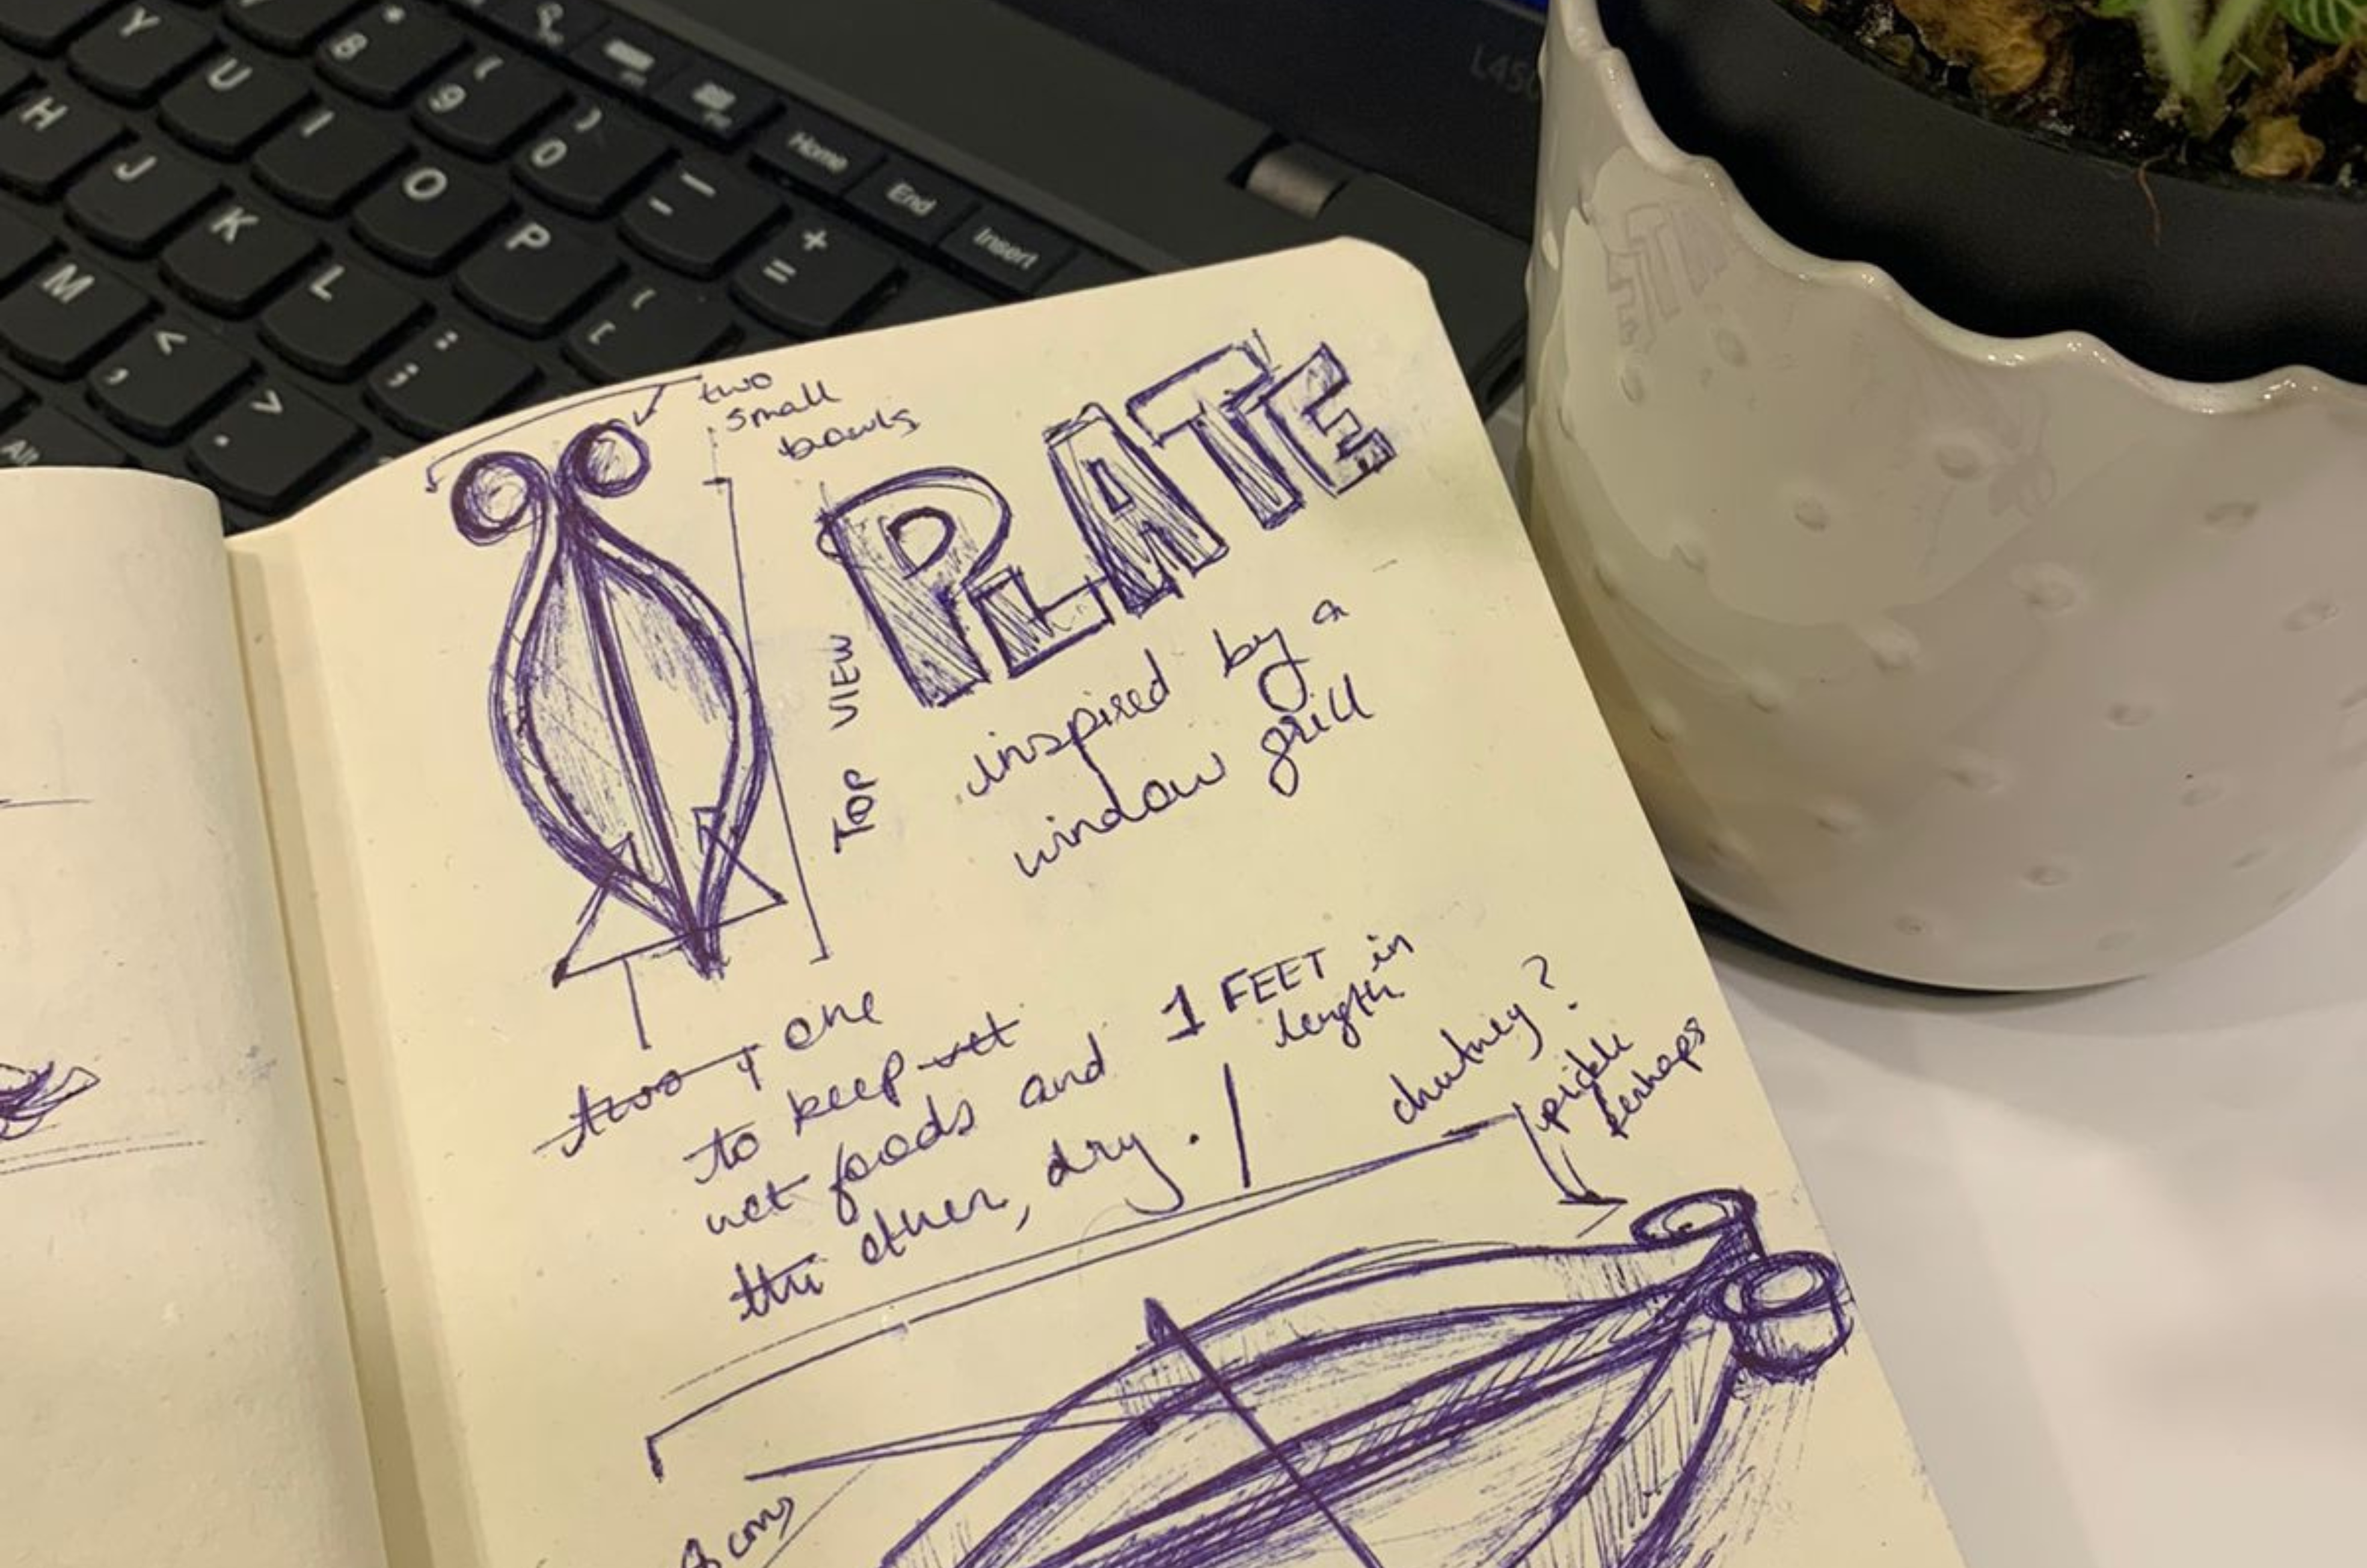 Y
* 8
( 9
) 0
Home
End
Insert
L450
H
U
I
O
P
- _
+ =
J
K
L
M
<
,
>
.
:
;
{
[
Alt
two
small
bowls
PLATE
TOP VIEW
inspired by a
window grill
two y one
to keep wet
wet foods and
the other, dry.
1 FEET in
length
chutney?
pickle
perhaps
8 cms